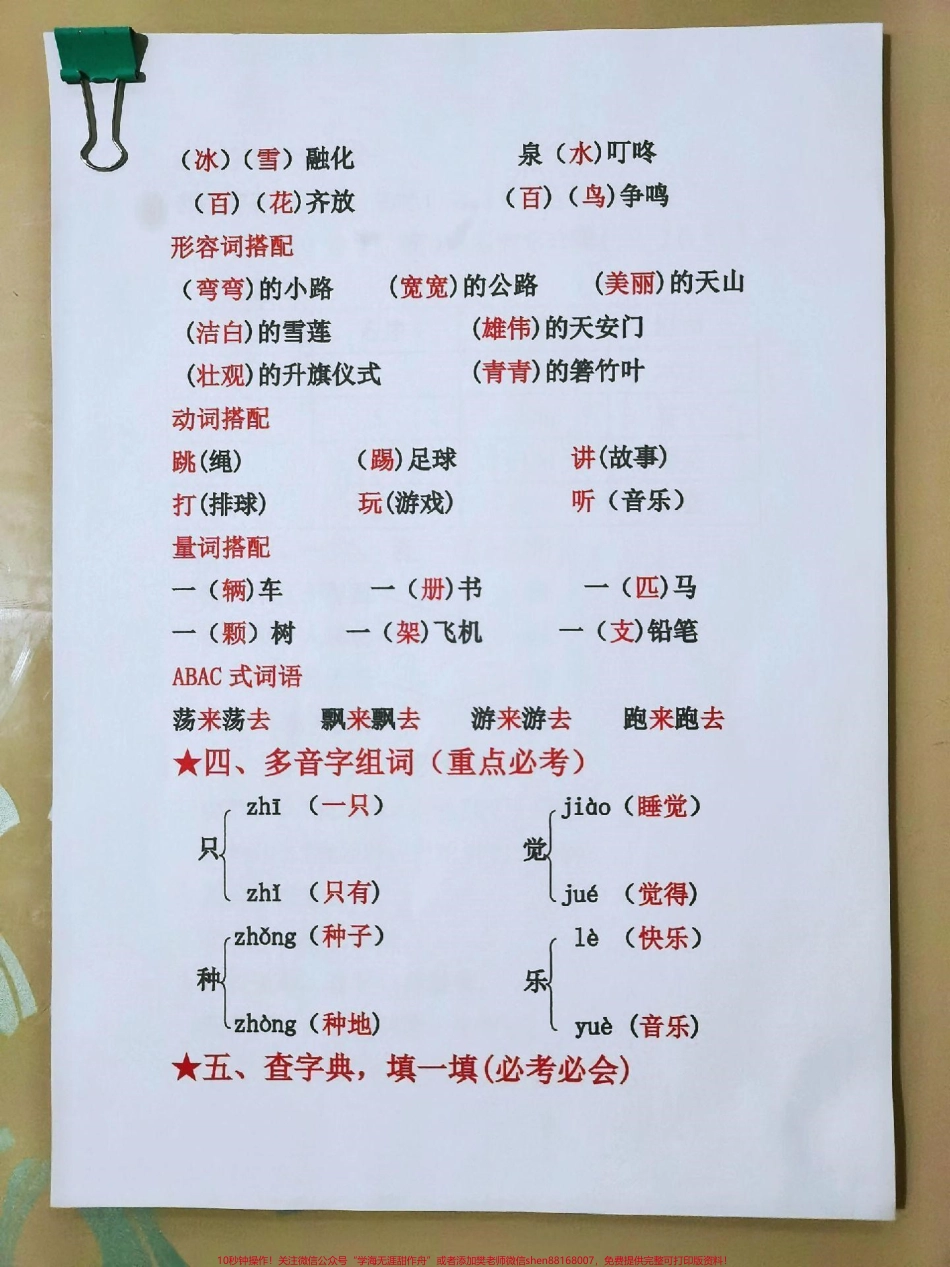 （冰）（雪）融化 泉（水)叮咚
（百)（花)齐放 （百)（鸟)争鸣
形容词搭配
（弯弯)的小路 (宽宽)的公路 (美丽)的天山
(洁白)的雪莲 (雄伟)的天安门
(壮观)的升旗仪式 (青青)的箬竹叶
动词搭配
跳(绳) （踢)足球 讲(故事)
打(排球) 玩(游戏) 听（音乐）
量词搭配
一（辆)车 一（册)书 一（匹)马
一（颗）树 一（架)飞机 一（支)铅笔
ABAC 式词语
荡来荡去 飘来飘去 游来游去 跑来跑去
★四、多音字组词（重点必考）
zhī （一只） jiào（睡觉）
只 觉
zhǐ （只有) jué （觉得)
zhǒng（种子） lè （快乐）
种 乐
zhòng（种地) yuè (音乐)
★五、查字典，填一填(必考必会)
10秒钟操作！关注微信公众号“学海无涯甜作舟”或者添加樊老师微信shen88168007，免费提供完整可打印版资料！